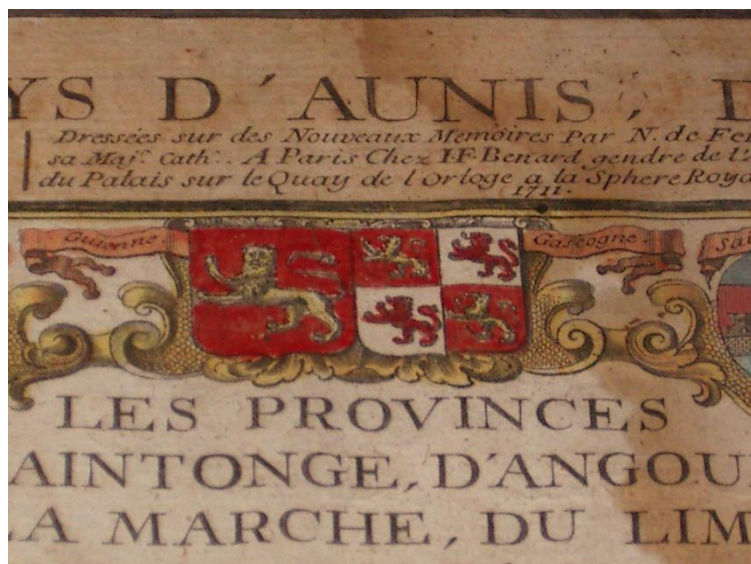 YS D'AUNIS, D
Dressées sur des Nouveaux Memoires Par N. de Fe
sa Maj. Cath. A Paris Chez I.F. Benard gendre de
du Palais sur le Quay de l'Orloge a la Sphere Roya
1711.
Guienne.
Gascogne.
Sai
LES PROVINCES
AINTONGE, D'ANGOU
LA MARCHE, DU LIM